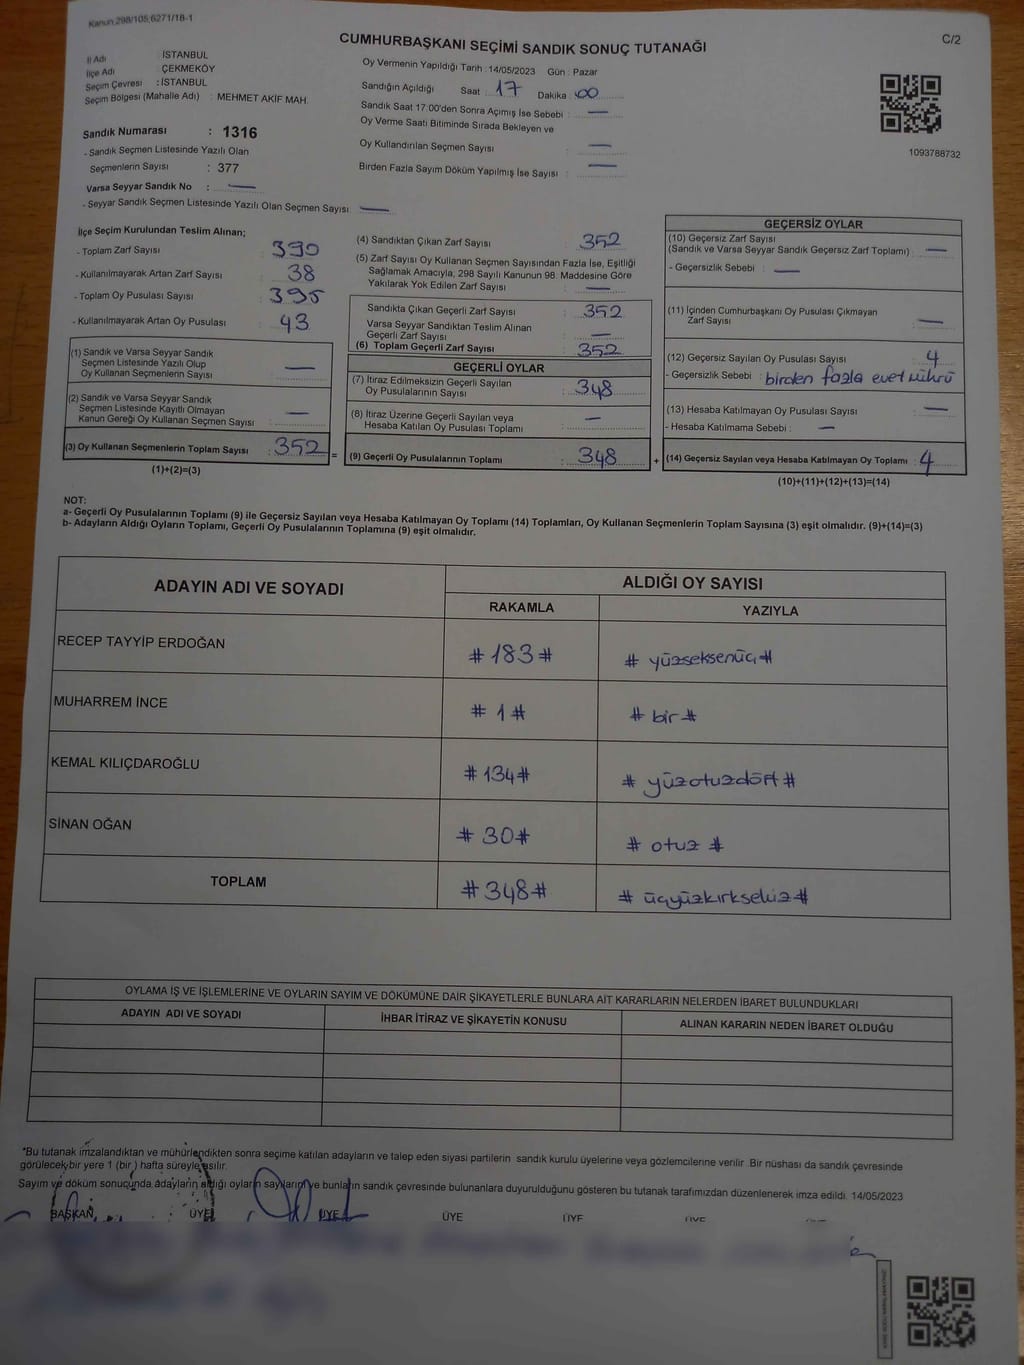 Kanun:298/105;6271/18-1
C/2
CUMHURBAŞKANI SEÇİMİ SANDIK SONUÇ TUTANAĞI
İl Adı : İSTANBUL
İlçe Adı : ÇEKMEKÖY
Seçim Çevresi : İSTANBUL
Seçim Bölgesi (Mahalle Adı) : MEHMET AKİF MAH.
Sandık Numarası : 1316
- Sandık Seçmen Listesinde Yazılı Olan
Seçmenlerin Sayısı : 377
Varsa Seyyar Sandık No : —
- Seyyar Sandık Seçmen Listesinde Yazılı Olan Seçmen Sayısı : —
Oy Vermenin Yapıldığı Tarih : 14/05/2023 Gün : Pazar
Sandığın Açıldığı Saat : 17 Dakika : 00
Sandık Saat 17:00'den Sonra Açımış İse Sebebi : —
Oy Verme Saati Bitiminde Sırada Bekleyen ve
Oy Kullandırılan Seçmen Sayısı : —
Birden Fazla Sayım Döküm Yapılmış İse Sayısı : —
1093788732
İlçe Seçim Kurulundan Teslim Alınan;
- Toplam Zarf Sayısı : 390
- Kullanılmayarak Artan Zarf Sayısı : 38
- Toplam Oy Pusulası Sayısı : 395
- Kullanılmayarak Artan Oy Pusulası : 43
(1) Sandık ve Varsa Seyyar Sandık
Seçmen Listesinde Yazılı Olup
Oy Kullanan Seçmenlerin Sayısı : —
(2) Sandık ve Varsa Seyyar Sandık
Seçmen Listesinde Kayıtlı Olmayan
Kanun Gereği Oy Kullanan Seçmen Sayısı : —
(3) Oy Kullanan Seçmenlerin Toplam Sayısı : 352
(1)+(2)=(3)
=
(4) Sandıktan Çıkan Zarf Sayısı : 352
(5) Zarf Sayısı Oy Kullanan Seçmen Sayısından Fazla İse, Eşitliği
Sağlamak Amacıyla, 298 Sayılı Kanunun 98. Maddesine Göre
Yakılarak Yok Edilen Zarf Sayısı : —
Sandıkta Çıkan Geçerli Zarf Sayısı : 352
Varsa Seyyar Sandıktan Teslim Alınan
Geçerli Zarf Sayısı : —
(6) Toplam Geçerli Zarf Sayısı : 352
GEÇERLİ OYLAR
(7) İtiraz Edilmeksizin Geçerli Sayılan
Oy Pusulalarının Sayısı : 348
(8) İtiraz Üzerine Geçerli Sayılan veya
Hesaba Katılan Oy Pusulası Toplamı : —
(9) Geçerli Oy Pusulalarının Toplamı : 348
+
GEÇERSİZ OYLAR
(10) Geçersiz Zarf Sayısı
(Sandık ve Varsa Seyyar Sandık Geçersiz Zarf Toplamı) : —
- Geçersizlik Sebebi : —
(11) İçinden Cumhurbaşkanı Oy Pusulası Çıkmayan
Zarf Sayısı : —
(12) Geçersiz Sayılan Oy Pusulası Sayısı : 4
- Geçersizlik Sebebi : birden fazla evet mührü
(13) Hesaba Katılmayan Oy Pusulası Sayısı : —
- Hesaba Katılmama Sebebi : —
(14) Geçersiz Sayılan veya Hesaba Katılmayan Oy Toplamı : 4
(10)+(11)+(12)+(13)=(14)
NOT:
a- Geçerli Oy Pusulalarının Toplamı (9) ile Geçersiz Sayılan veya Hesaba Katılmayan Oy Toplamı (14) Toplamları, Oy Kullanan Seçmenlerin Toplam Sayısına (3) eşit olmalıdır. (9)+(14)=(3)
b- Adayların Aldığı Oyların Toplamı, Geçerli Oy Pusulalarının Toplamına (9) eşit olmalıdır.
ADAYIN ADI VE SOYADI
ALDIĞI OY SAYISI
RAKAMLA YAZIYLA
RECEP TAYYİP ERDOĞAN # 183 # # yüzseksenüç #
MUHARREM İNCE # 1 # # bir #
KEMAL KILIÇDAROĞLU # 134 # # yüzotuzdört #
SİNAN OĞAN # 30 # # otuz #
TOPLAM # 348 # # üçyüzkırksekiz #
OYLAMA İŞ VE İŞLEMLERİNE VE OYLARIN SAYIM VE DÖKÜMÜNE DAİR ŞİKAYETLERLE BUNLARA AİT KARARLARIN NELERDEN İBARET BULUNDUKLARI
ADAYIN ADI VE SOYADI İHBAR İTİRAZ VE ŞİKAYETİN KONUSU ALINAN KARARIN NEDEN İBARET OLDUĞU
*Bu tutanak imzalandıktan ve mühürlendikten sonra seçime katılan adayların ve talep eden siyasi partilerin sandık kurulu üyelerine veya gözlemcilerine verilir. Bir nüshası da sandık çevresinde
görülecek bir yere 1 (bir ) hafta süreyle asılır.
Sayım ve döküm sonucunda adayların aldığı oyların sayıların ve bunların sandık çevresinde bulunanlara duyurulduğunu gösteren bu tutanak tarafımızdan düzenlenerek imza edildi. 14/05/2023
BAŞKAN ÜYE ÜYE ÜYE ÜYE ÜYE